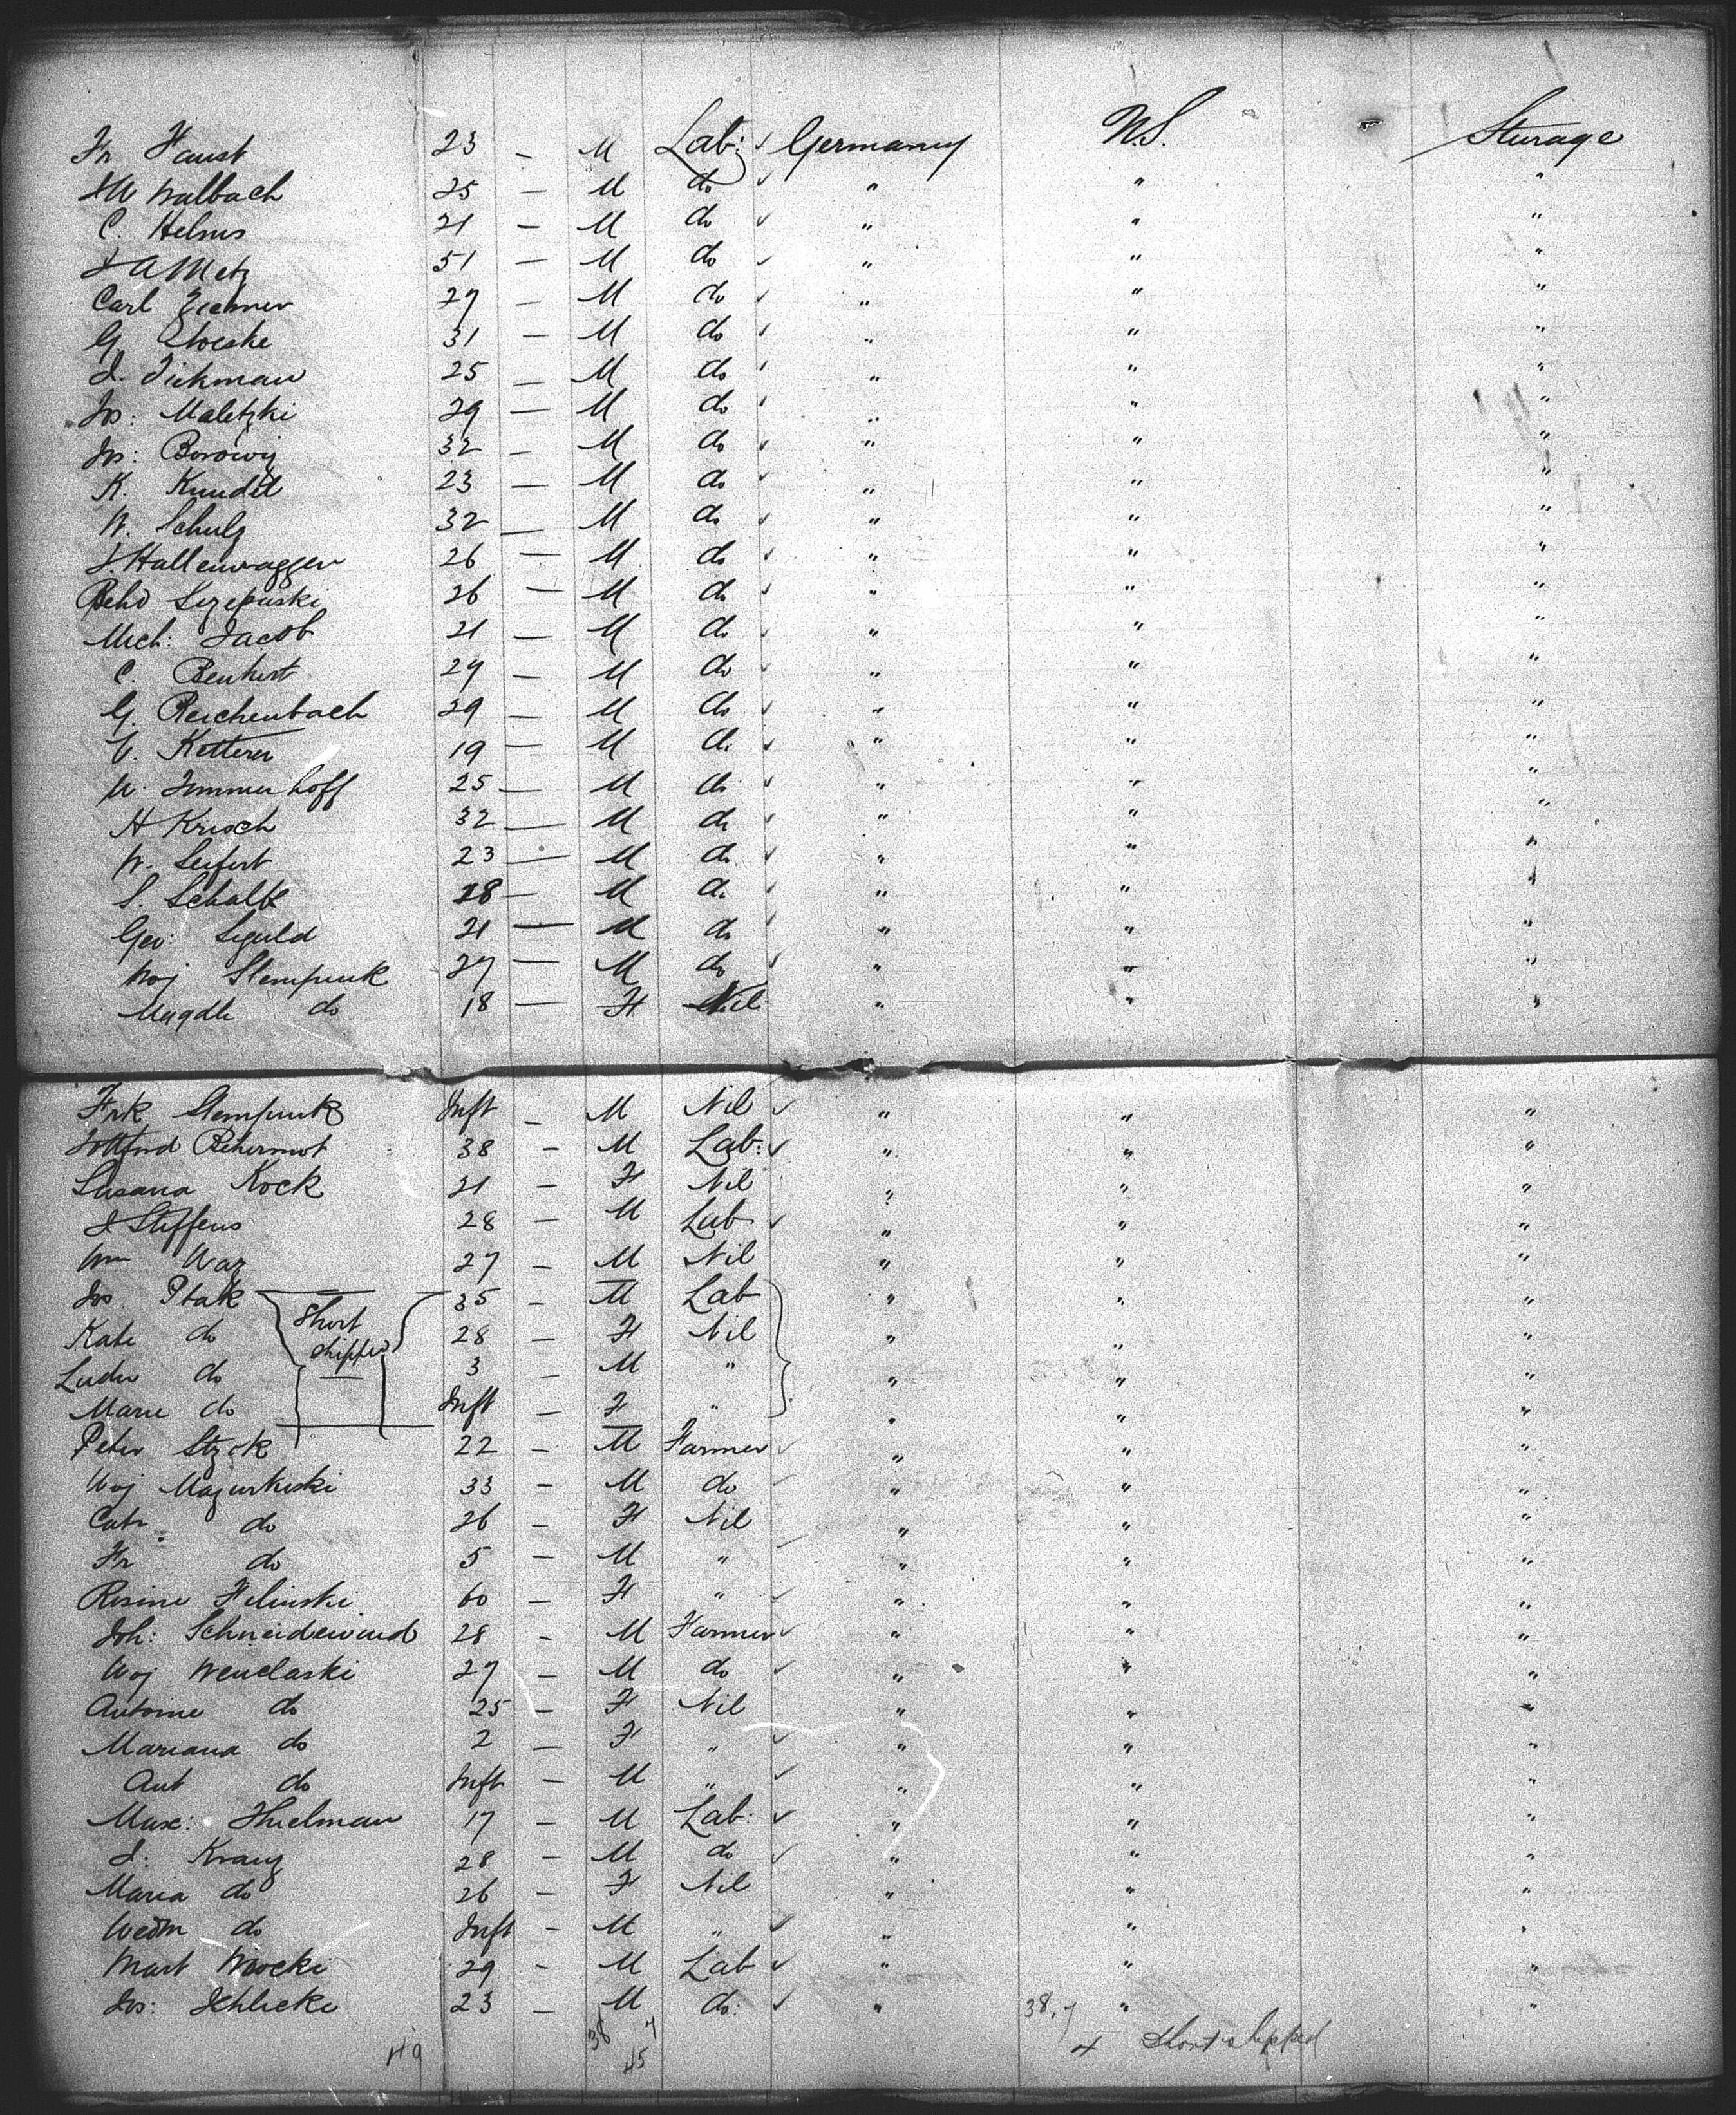 Fr Faust 23 — M Lab: ✓ Germany U.S. Steerage
J W Walbach 25 — M do ✓ " " "
C. Helms 21 — M do ✓ " " "
J A Metz 51 — M do ✓ " " "
Carl 27 — M do ✓ " " "
G. 31 — M do ✓ " " "
J. Tickman 25 — M do " " "
Jos: Maletzki 29 — M do " " "
Jos: 32 — M do ✓ " " "
K. Kundel 23 — M do ✓ " " "
W. Schulz 32 — M do ✓ " " "
J. Hallenwagger 26 — M do ✓ " " "
Szepanski 26 — M do ✓ " " "
Mich: Jacob 21 — M do ✓ " " "
C. Benkert 24 — M do ✓ " " "
G. Reichenbach 29 — M do ✓ " " "
V. Ketterer 19 — M do ✓ " " "
W. Immerhoff 25 — M do ✓ " " "
H Krisch 32 — M do ✓ " " "
W. Seifert 23 — M do ✓ " " "
S. Schalk 28 — M do ✓ " " "
Geo: 21 — M do ✓ " " "
Woj Stempniak 27 — M do ✓ " " "
Magdl do 18 — F Nil " " "
Frk Stempniak Inft — M Nil ✓ " " "
38 — M Lab: ✓ " " "
Susana Kock 21 — F Nil " " "
J Steffens 28 — M Lab ✓ " " "
Wm 27 — M Nil " " "
Jos. Ptak Short 35 — M Lab " " "
Kate do shipped 28 — F Nil " " "
Ludw do 3 — M " " " "
Marie do Inft — F " " " "
Peter 22 — M Farmer ✓ " " "
Woj 33 — M do ✓ " " "
Cath do 26 — F Nil " " "
Fr do 5 — M " " " "
Rosine Filinski 60 — F " ✓ " " "
Joh: Schneidewind 28 — M Farmer ✓ " " "
Woj Wenclaski 27 — M do ✓ " " "
Antoine do 25 — F Nil " " "
Mariana do 2 — F " ✓ " " "
Ant do Inft — M " ✓ " " "
Max: Thielman 17 — M Lab: ✓ " " "
J: Kranz 28 — M do ✓ " " "
Maria do 26 — F Nil " " "
do Inft — M " ✓ " " "
Mart 29 — M Lab ✓ " " "
Jos: Schlicke 23 — M do: ✓ " " "
49 38 7 38,7
45 4 Short shipped